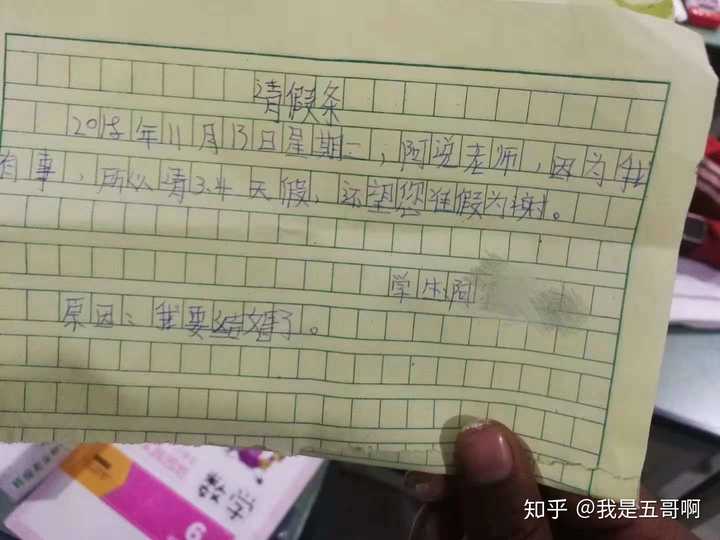 请假条
2018年11月13日星期二,阿说老师,因为我
有事,所以请3.4天假,还望您准假为谢。
学生阿
原因:我要结婚了。
知乎 @我是五哥啊